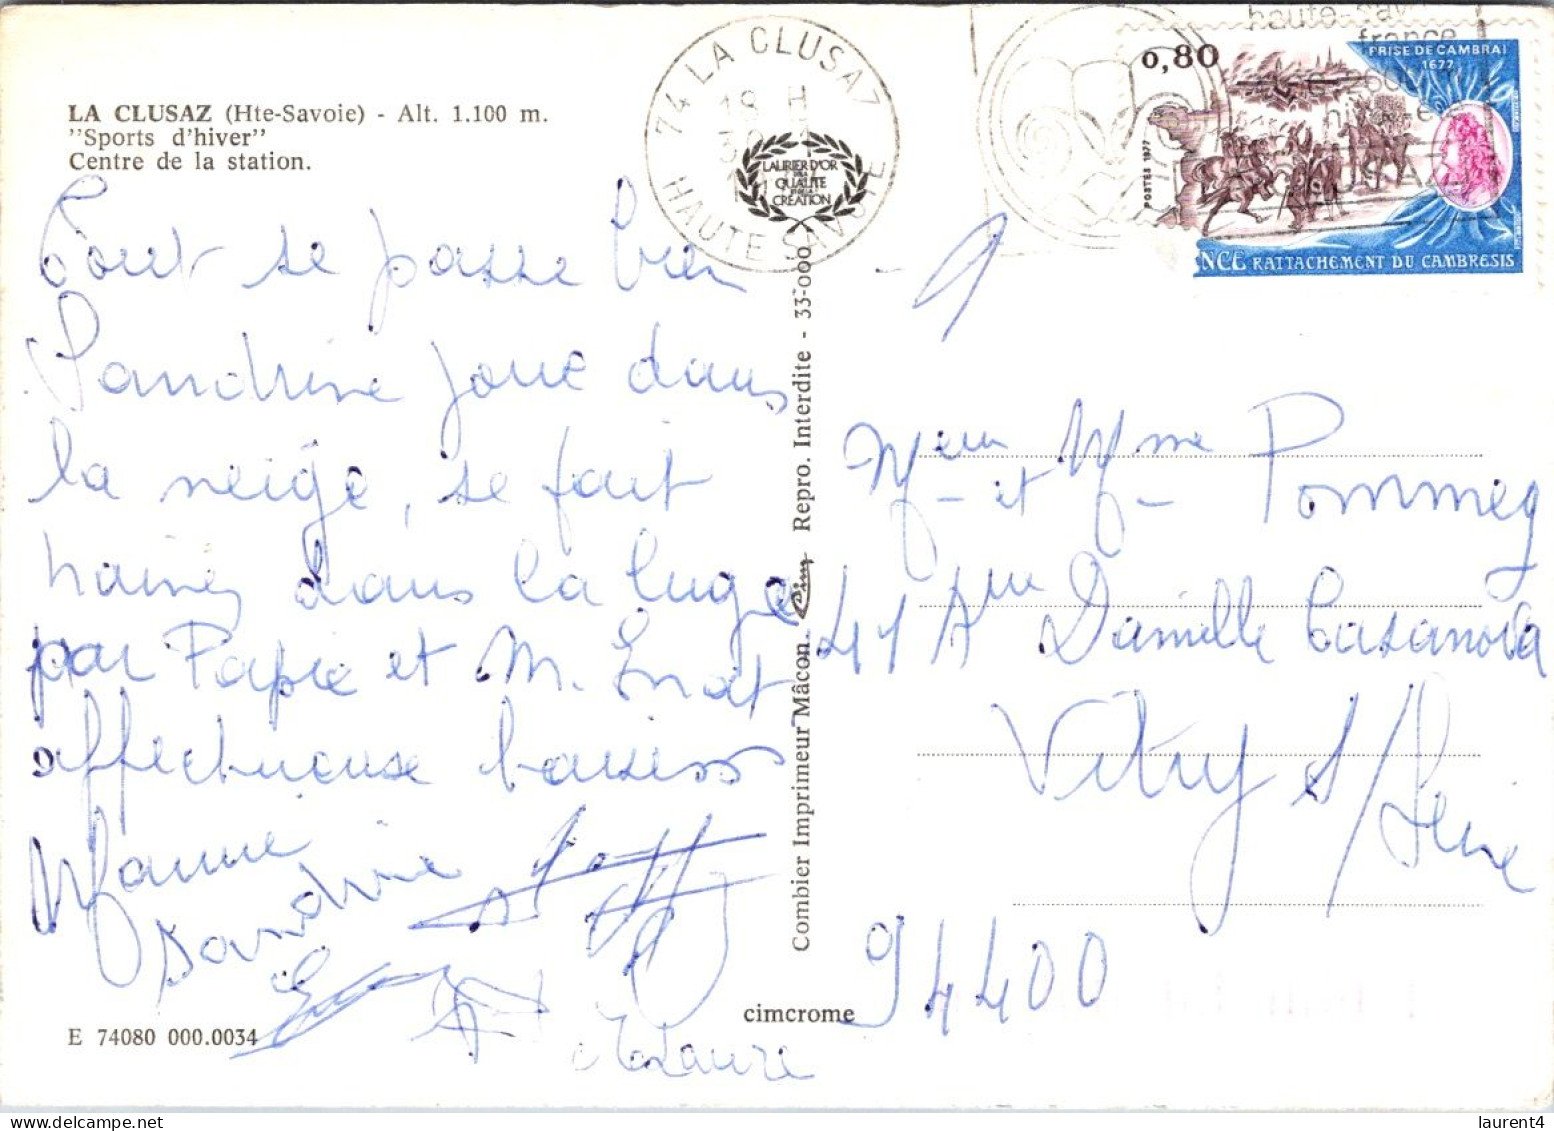 LA CLUSAZ (Hte-Savoie) - Alt. 1.100 m.
"Sports d'hiver"
Centre de la station.
Tout se passe bien
Sandrine joue dans
la neige, se fait
trainer dans la luge
par Papie et M.
affectueuse baisers
Mamie
Sandrine
Laure
E 74080 000.0034
cimcrome
Combier Imprimeur Mâcon Cim Repro. Interdite - 33-000
74 LA CLUSAZ
18 H
HAUTE SAVOIE
LAURIER D'OR
DE LA
QUALITE
ET DE LA
CREATION
haute-savoie
france
LA CLUSAZ
0,80
PRISE DE CAMBRAI
1677
POSTES 1977
NCE RATTACHEMENT DU CAMBRESIS
Meur et Mme Pommey
41 Danielle Casanova
Vitry s/Seine
94400
laurent4